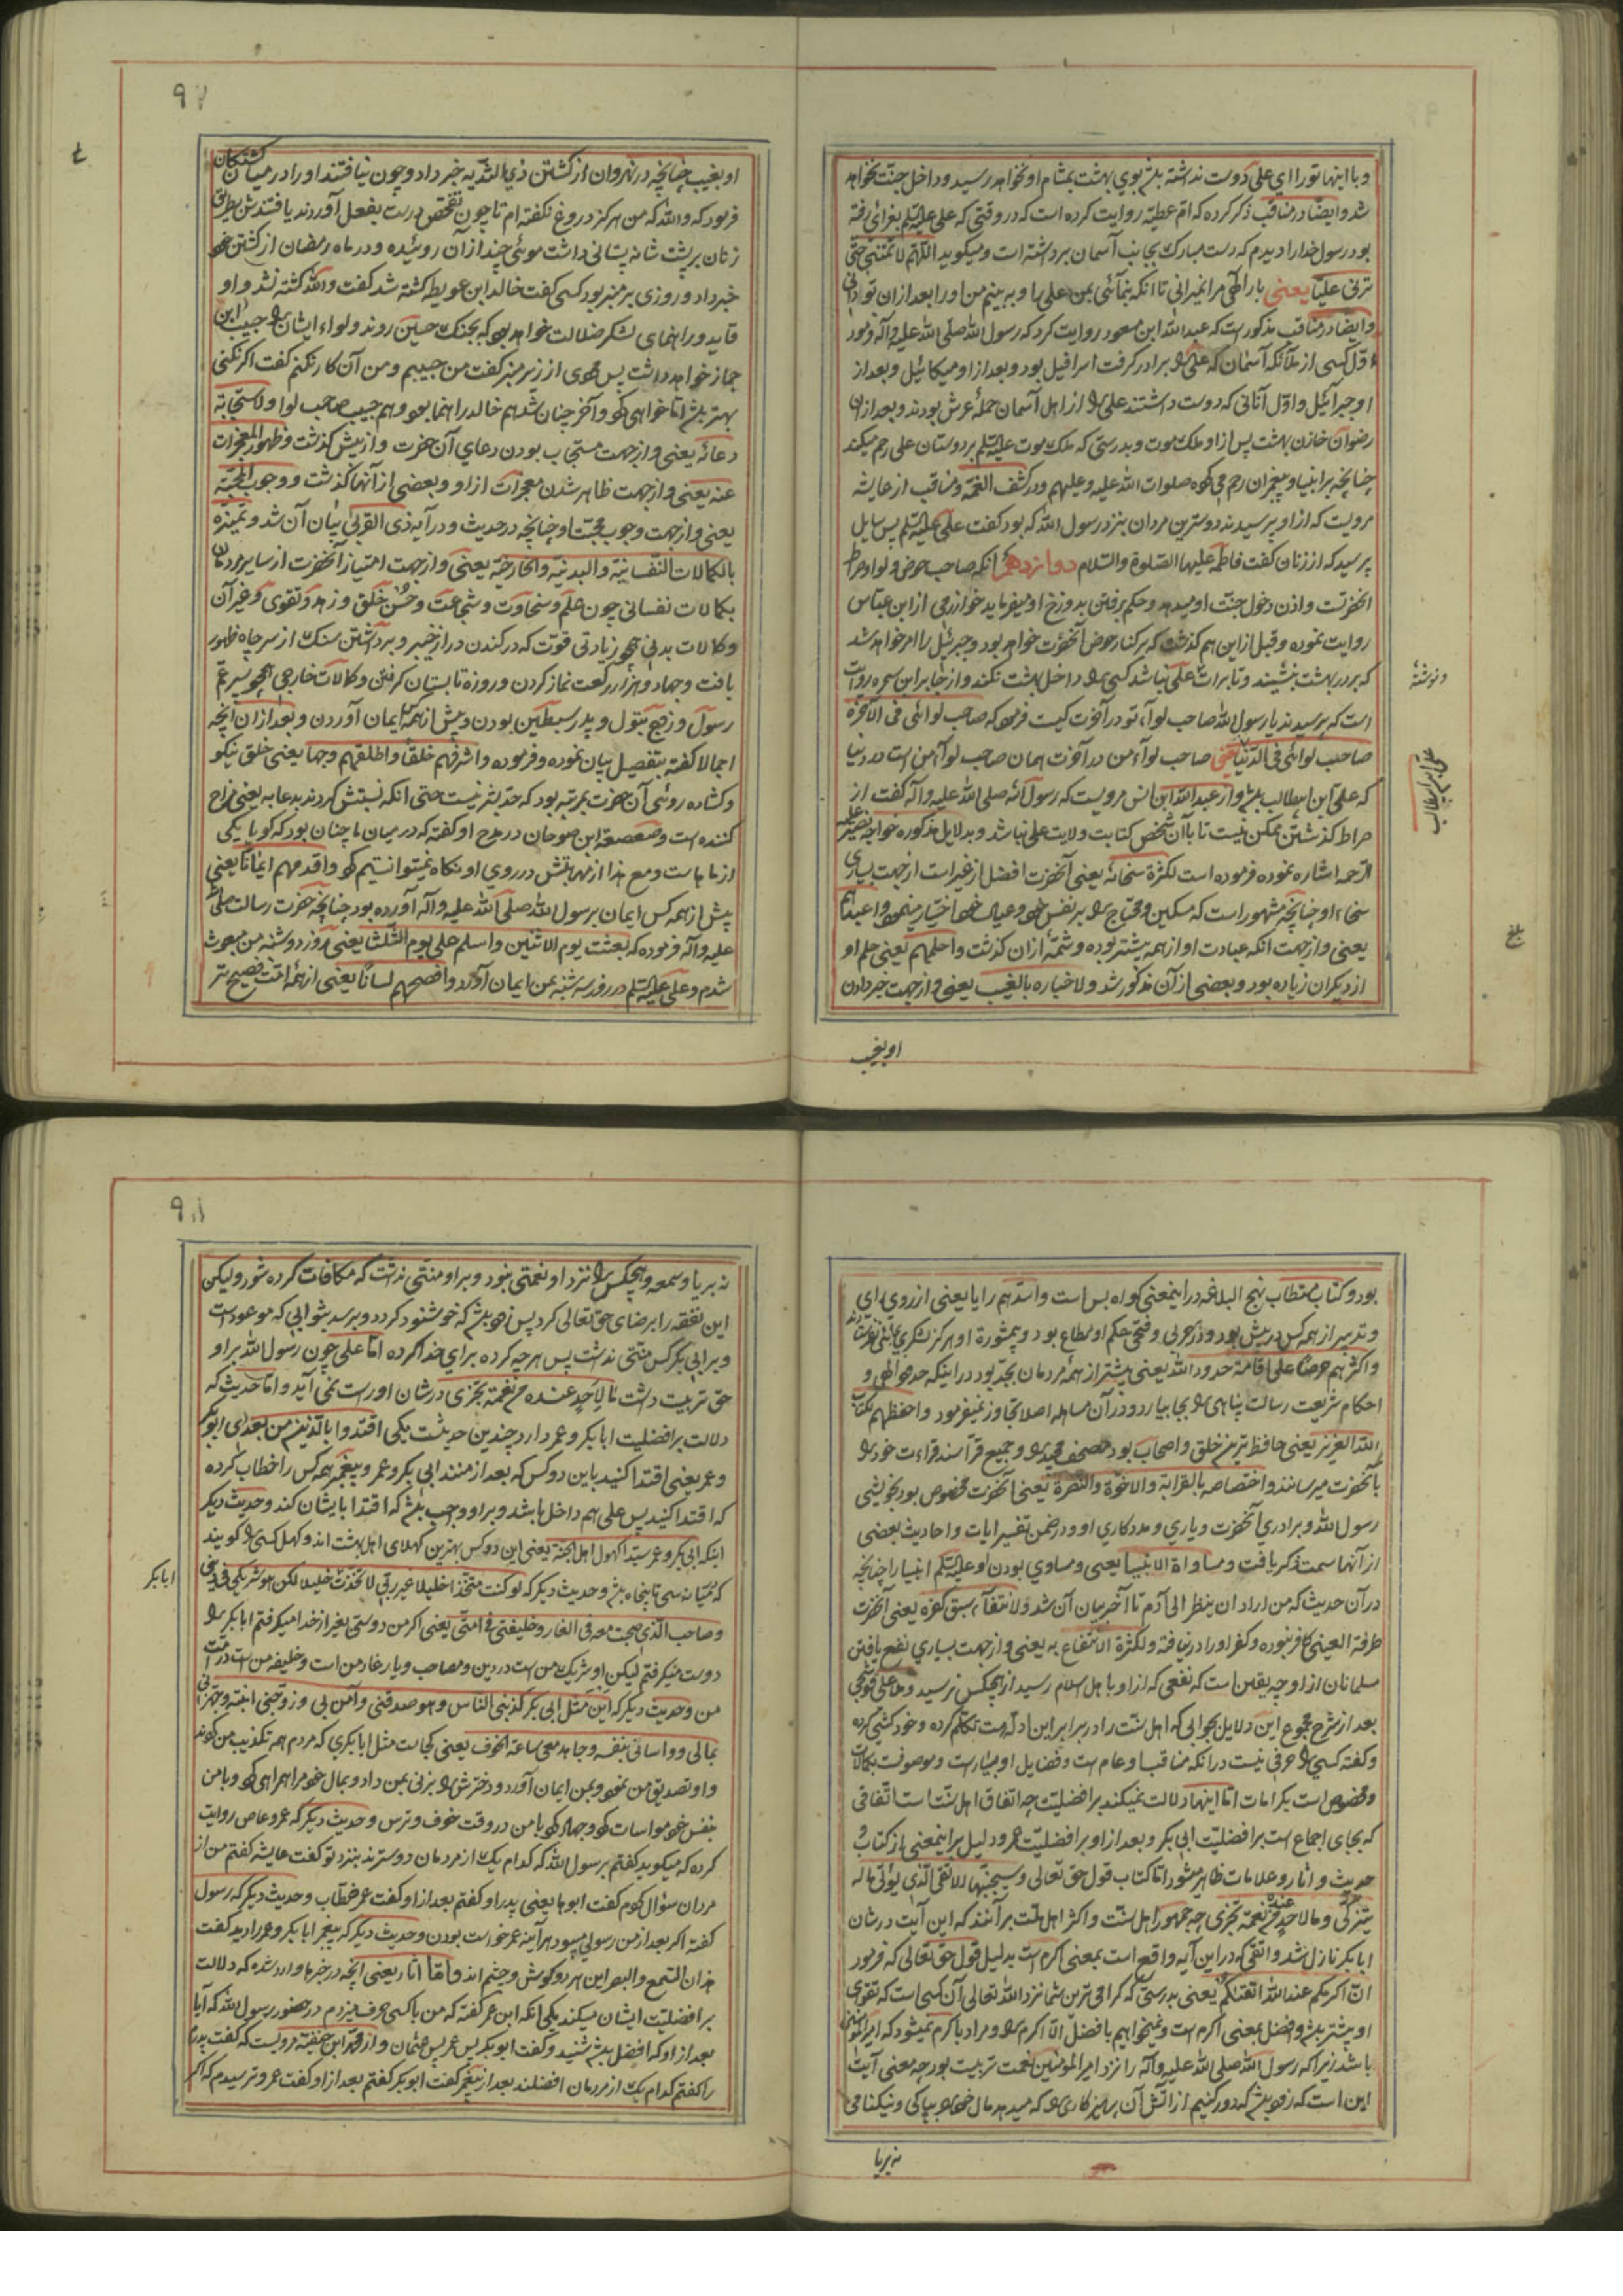 و با اینها تو را ای علی دوست نداشته باشد بوی بهشت بمشام او نخواهد رسید و داخل جنت نخواهد
شد و ایضا در مناقب ذکر کرده که ام عطیه روایت کرده است که در وقتی که علی علیه السلم بغزائی رفته
بود رسول خدا را دیدم که دست مبارک بجانب آسمان برداشته است و میکوید اللهم لا تمتنی حتی
ترنی علیا یعنی بار الهی مرا نمیرانی تا آنکه بنمائی بمن علی را و به بینم من او را بعد از ان تو دانی
و ایضا در مناقب مذکور است که عبد الله ابن مسعود روایت کرد که رسول الله صلی الله علیه و آله فرمود
اول کسی از ملائکه آسمان که علی را برادر کرفت اسرافیل بود و بعد از او میکائیل و بعد از
او جبرائیل و اول آنانی که دوست داشتند علی را از اهل آسمان حمله عرش بودند و بعد از ان
رضوان خازن بهشت پس از او ملک موت و بدرستی که ملک موت علیه السلم بر دوستان علی رحم میکند
چنانچه بر انبیا و پیغمبران رحم می کوه صلوات الله علیه و علیهم و در کشف الغمه و مناقب از عایشه
مرویست که از او پرسیدند دوسترین مردان بنزد رسول الله که بود کفت علی علیه السلم پس سایل
پرسید که از زنان کفت فاطمه علیها الصلوة و السلام دوازدهم آنکه صاحب حوض و لوا و صراط
انحضرتست و اذن دخول جنت او میدهد و حکم برفتن بدوزخ او میفرماید خوارزمی از ابن عباس
روایت نموده و قبل از این هم کذشت که بر کنار حوض آنحضرت خواهد بود و جبرئیل را امر خواهد شد
که بر در بهشت بنشیند و تا برات علی نباشد کسی را داخل بهشت نکند و از جابر ابن سمره روایت
است که پرسیدند یا رسول الله صاحب لوآء تو در آخرت کیست فرمود که صاحب لوائی فی الاخرة
صاحب لوائی فی الدنیا یعنی صاحب لوآء من در آخرت همان صاحب لوآء من است در دنیا
که علی ابن ابیطالب باشد و از عبد الله ابن انس مرویست که رسول الله صلی الله علیه و آله کفت از
صراط کذشتن ممکن نیست تا با آن شخص کتابت ولایت علی نباشد و بدلایل مذکوره خواجه نصیر علیه
الرحمه اشاره نموده فرموده است لکثرة سخائه یعنی آنحضرت افضل از غیر است از جهت بسیاری
سخاء او چنانچه مشهور است که مسکین و محتاج را بر نفس خود و عیال خود اختیار مینمود و اعبدهم
یعنی و از جهت آنکه عبادت او از همه بیشتر بوده و شمه‌ٔ از آن کذشت و احلمهم یعنی حلم او
از دیکران زیاده بود و بعضی از آن مذکور شد و لاخباره بالغیب یعنی و از جهت خبر دادن
او بغیب
و نوشته
علی بن ابیطالب
بلغ
۹۷
او بغیب چنانچه در نهروان از کشتن ذی الثدیه خبر داد و چون نیافتند او را در میان کشتکان
فرمود که والله که من هرکز دروغ نکفته ام تا چون تفحص درست بفعل آوردند یافتندش بطریق
زنان بر پشت شانه پستانی داشت موئی چند از آن روئیده و در ماه رمضان از کشتن خود
خبر داد و روزی بر منبر بود کسی کفت خالد ابن عویطه کشته شد کفت والله کشته نشد و او
قاید و راهنمای لشکر ضلالت خواهد بود که بجنک حسین روند و لواء ایشان را حبیب ابن
جماز خواهد داشت پس مردی از زیر منبر کفت من حبیبم و من آن کار نکنم کفت اکر نکنی
بهتر باشد اما خواهی کرد و آخر چنان شد هم خالد راهنما بود و هم حبیب صاحب لوا و لاستجابة
دعائه یعنی و از جهت مستجاب بودن دعای آن حضرت و از پیش کذشت و ظهور المعجزات
عنه یعنی و از جهت ظاهر شدن معجزات از او و بعضی از آنها کذشت و وجوب المحبة
یعنی و از جهت وجوب محبت او چنانچه در حدیث و در آیه ذی القربی بیان آن شد و تمیزه
بالکمالات النفسانیة و البدنیة و الخارجیة یعنی و از جهت امتیاز آنحضرت از سایر مردمان
بکمالات نفسانی چون حلم و سخاوت و شجاعت و حسن خلق و زهد و تقوی و غیر آن
و کمالات بدنی همچو زیادتی قوت که در کندن در از خیبر و برداشتن سنک از سر چاه ظهور
یافت و جهاد و هزار رکعت نماز کردن و روزه تابستان کرفتن و کمالات خارجی همچو پسر عم
رسول و زوج بتول و پدر سبطین بودن و پیش از همه ایمان آوردن و بعد از ان آنچه
اجمالا کفته بتفصیل بیان نموده و فرموده و اشرفهم خلقا و اطلقهم وجها یعنی خلق نیکو
و کشاده روئی آن حضرت بمرتبه بود که حد بشر نیست حتی آنکه نسبتش کردند بدعابه یعنی مزاح
کننده است و صعصعة ابن صوحان در مدح او کفته که در میان ما چنان بود که کویا یکی
از ماهاست و مع هذا از مهابتش در روی او نکاه نمیتوانستیم کرد و اقدمهم ایمانا یعنی
پیش از همه کس ایمان برسول الله صلی الله علیه و آله آورده بود چنانچه حضرت رسالت صلی الله
علیه و آله فرموده که بعثت یوم الاثنین و اسلم علی یوم الثلثا یعنی روز دوشنبه من مبعوث
شدم و علی علیه السلم در روز سه شنبه بمن ایمان آورد و افصحهم لسانا یعنی از همه امت فصیح تر
بود و کتاب مستطاب نهج البلاغه در اینمعنی کواه بس است و اسدهم رایا یعنی از روی رای
و تدبیر از همه کس در پیش بود و در حربی و فتحی حکم او مطاع بود و بمشورة او هرکز لشکری
و اکثرهم حرصا علی اقامة حدود الله یعنی بیشتر از همه مردمان بجد بود در اینکه حدود الهی و
احکام شریعت رسالت پناهی را بجا بیارد و در آن مساهله اصلا تجاوز نمیفرمود و احفظهم لکتاب
الله العزیز یعنی حافظ ترین خلق و اصحاب بود مصحف مجید را و جمیع قرآ سند قراءت خود را
بآنحضرت میرسانند و اختصاصه بالقرابة و الاخوة و النصرة یعنی آنحضرت مخصوص بود بخویشی
رسول الله و برادری آنحضرت و یاری و مددکاری او و در ضمن تفسیر ایات و احادیث بعضی
از آنها سمت ذکر یافت و مساواة الانبیا یعنی و مساوی بودن او علیه السلم انبیا را چنانچه
در آن حدیث که من اراد ان ینظر الی آدم تا آخر بیان آن شد و لانتفآء سبق کفره یعنی آنحضرت
طرفة العینی کافر نبوده و کفر او را در نیافته و لکثرة الانتفاع به یعنی و از جهت بسیاری نفع یافتن
مسلمانان از او چه یقین است که نفعی که از او باهل اسلام رسید از هیچکس نرسید و ملا علی قوشجی
بعد از شرح مجموع این دلایل بجوابی که اهل سنت را در برابر این ادله هست تکلم کرده و خودکشی کرده
و کفته کسی را حرفی نیست در آنکه مناقب او عام است و فضایل او بسیار است و موصوفست بکمالات
و مخصوص است بکرامات اما اینها دلالت نمیکند بر افضلیت چه اتفاق اهل سنت است اتفاقی
که بجای اجماع است بر افضلیت ابی بکر و بعد از او بر افضلیت عمر و دلیل بر اینمعنی از کتاب و
حدیث و اثار و علامات ظاهر میشود اما کتاب قول حق تعالی و سیجنبها الاتقی الذی یؤتی ماله
یتزکی و ما لاحد عنده من نعمة تجزی چه جمهور اهل سنت و اکثر اهل ملت برآنند که این آیت در شان
ابا بکر نازل شد و اتقی که در این آیه واقع است بمعنی اکرم است بدلیل قول حق تعالی که فرمود
ان اکرمکم عند الله اتقیکم یعنی بدرستی که کرامی ترین شما نزد الله تعالی آن کسی است که تقوی
او بیشتر باشد و افضل بمعنی اکرم است و نمیخواهیم بافضل الا اکرم را و مراد باکرم نمیشود که امیر المؤمنین
باشد زیرا که رسول الله صلی الله علیه و آله را نزد امیر المؤمنین نعمت تربیت بود چه معنی آیت
این است که زود باشد که دور کنیم از آتش آن پرهیزکاری را که میدهد مال خود را بپاکی و نیکنامی
نه بریا
۹۸
نه بریا و سمعه و هیچکس را نزد او نعمتی نبود و بر او منتی نداشت که مکافات کرده شود و لیکن
این نفقه را برضای حق تعالی کرد پس زود باشد که خوشنود کردد و برسد بثوابی که موعود است
و بر ابی بکر کس منتی نداشت پس هر چه کرده برای خدا کرده اما علی چون رسول الله بر او
حق تربیت داشت ما لاحد عنده من نعمة تجزی در شان او راست نمی آید و اما حدیث که
دلالت بر افضلیت ابا بکر و عمر دارد چندین حدیثست یکی اقتدوا بالذین من بعدی ابو بکر
و عمر یعنی اقتدا کنید باین دو کس که بعد از منند ابی بکر و عمر و پیغمبر همه کس را خطاب کرده
که اقتدا کنید پس علی هم داخل باشد و بر او واجب باشد که اقتدا بایشان کند و حدیث دیکر
اینکه ابی بکر و عمر سیدا کهول اهل الجنة یعنی این دو کس بهترین کهلای اهل بهشت اند و کهل کسی را کویند
که میانه سی تا پنجاه باشد و حدیث دیکر که لو کنت متخذا خلیلا غیر ربی لاتخذت خلیلا لکن هو شریکی فی دینی
و صاحب الذی صحبت معه فی الغار و خلیفتی فی امتی یعنی اکر من دوستی بغیر از خدا میکرفتم ابا بکر را
دوست میکرفتم لیکن او شریک من است در دین و مصاحب و یار غار من است و خلیفه من است در امت
من و حدیث دیکر که این مثل ابی بکر کذبنی الناس و هو صدقنی و آمن بی و زوجنی ابنته و جهزنی
بمالی و واسانی بنفسه و جاهد معی ساعة الخوف یعنی کجاست مثل ابا بکری که مردم همه تکذیب من کردند
و او تصدیق من نمود و بمن ایمان آورد و دخترش را بزنی بمن داد و بمال خود مرا همراهی کرد و با من
بنفس خود مواسات کرد و جهاد کرد با من در وقت خوف و ترس و حدیث دیکر که عمرو عاص روایت
کرده که میکوید کفتم برسول الله که کدام یک از مردمان دوسترند بنزد تو کفت عایشه کفتم من از
مردان سؤال کردم کفت ابوها یعنی پدر او کفتم بعد از او کفت عمر خطاب و حدیث دیکر که رسول
کفته اکر بعد از من رسولی میبود هر آینه عمر خواست بودن و حدیث دیکر که پیغمبر ابا بکر و عمر را دید کفت
هذان السمع و البصر این هر دو کوش و چشم اند و اما اثار یعنی آنچه در خبرها وارد شده که دلالت
بر افضلیت ایشان میکند یکی آنکه ابن عمر کفته که من با کسی حرف میزدم در حضور رسول الله که آیا
بعد از او که افضل باشد شنید و کفت ابو بکر پس عمر پس عثمان و از محمد ابن حنفیه مرویست که کفت پدرم
را کفتم کدام یک از مردمان افضلند بعد از پیغمبر کفت ابو بکر کفتم بعد از او کفت عمر و ترسیدم که اکر
ابا بکر